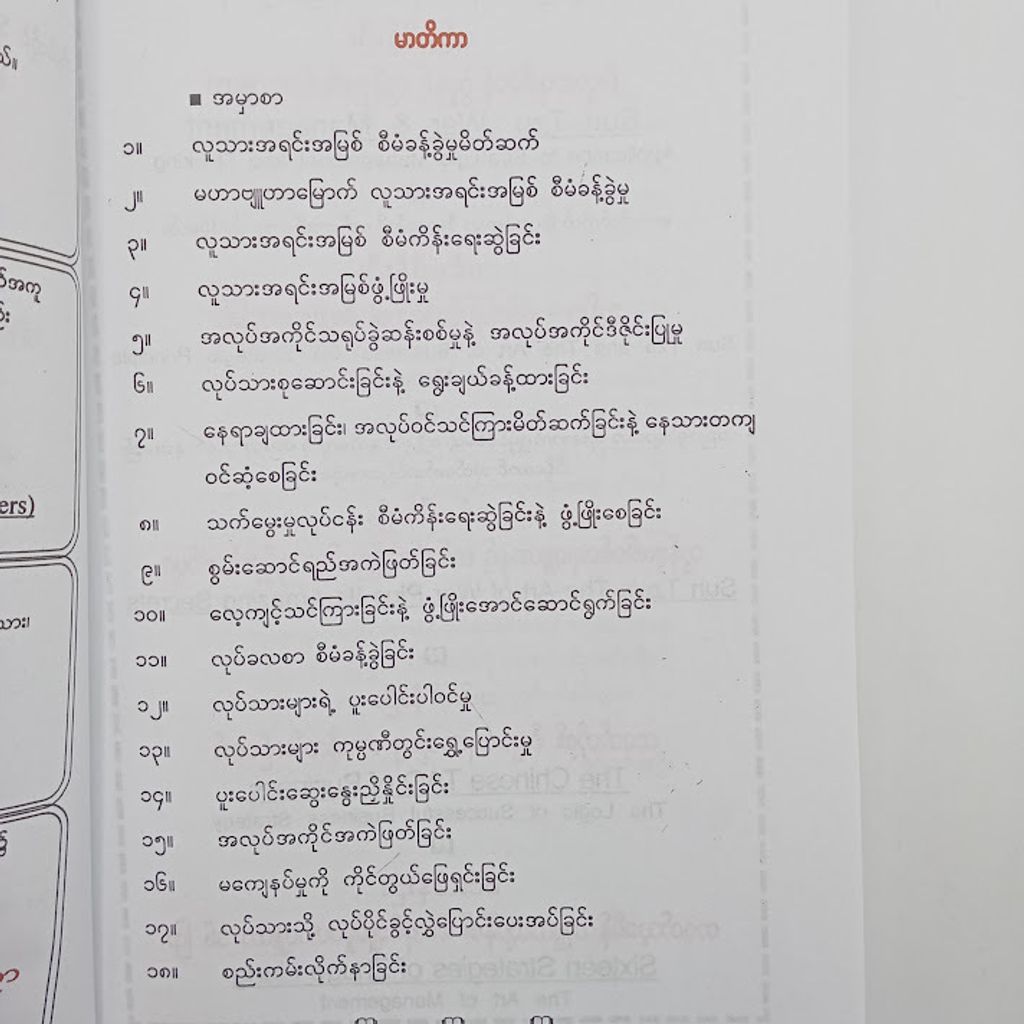 မာတိကာ
■ အမှာစာ
၁။ လူသားအရင်းအမြစ် စီမံခန့်ခွဲမှုမိတ်ဆက်
၂။ မဟာဗျူဟာမြောက် လူသားအရင်းအမြစ် စီမံခန့်ခွဲမှု
၃။ လူသားအရင်းအမြစ် စီမံကိန်းရေးဆွဲခြင်း
၄။ လူသားအရင်းအမြစ်ဖွံ့ဖြိုးမှု
၅။ အလုပ်အကိုင်သရုပ်ခွဲဆန်းစစ်မှုနဲ့ အလုပ်အကိုင်ဒီဇိုင်းပြုမှု
၆။ လုပ်သားစုဆောင်းခြင်းနဲ့ ရွေးချယ်ခန့်ထားခြင်း
၇။ နေရာချထားခြင်း၊ အလုပ်ဝင်သင်ကြားမိတ်ဆက်ခြင်းနဲ့ နေသားတကျ
ဝင်ဆံ့စေခြင်း
၈။ သက်မွေးမှုလုပ်ငန်း စီမံကိန်းရေးဆွဲခြင်းနဲ့ ဖွံ့ဖြိုးစေခြင်း
၉။ စွမ်းဆောင်ရည်အကဲဖြတ်ခြင်း
၁၀။ လေ့ကျင့်သင်ကြားခြင်းနဲ့ ဖွံ့ဖြိုးအောင်ဆောင်ရွက်ခြင်း
၁၁။ လုပ်ခလစာ စီမံခန့်ခွဲခြင်း
၁၂။ လုပ်သားများရဲ့ ပူးပေါင်းပါဝင်မှု
၁၃။ လုပ်သားများ ကုမ္ပဏီတွင်းရွှေ့ပြောင်းမှု
၁၄။ ပူးပေါင်းဆွေးနွေးညှိနှိုင်းခြင်း
၁၅။ အလုပ်အကိုင်အကဲဖြတ်ခြင်း
၁၆။ မကျေနပ်မှုကို ကိုင်တွယ်ဖြေရှင်းခြင်း
၁၇။ လုပ်သားသို့ လုပ်ပိုင်ခွင့်လွှဲပြောင်းပေးအပ်ခြင်း
၁၈။ စည်းကမ်းလိုက်နာခြင်း
ers)